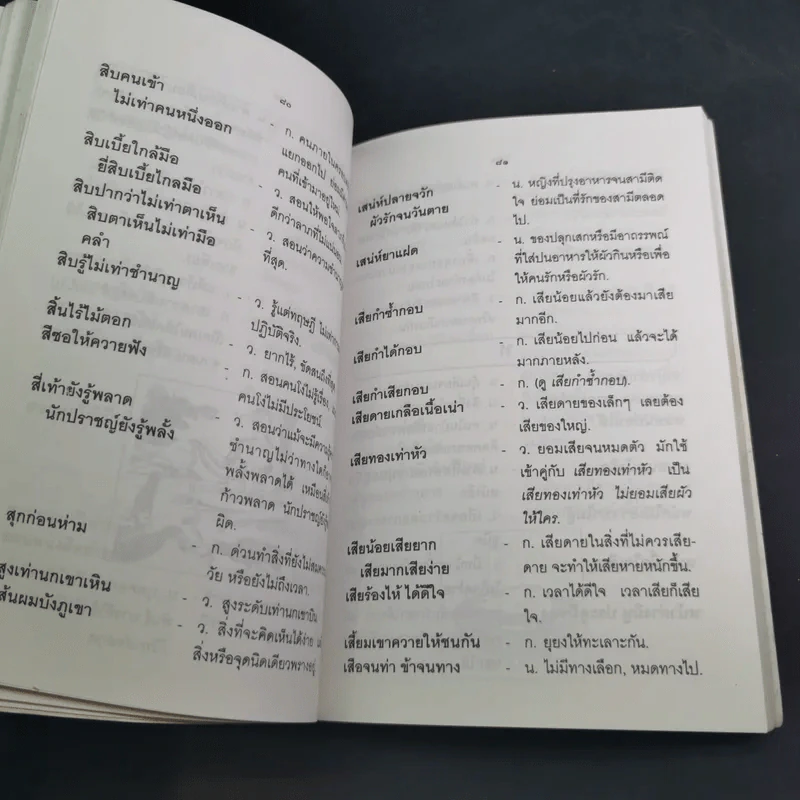 ๘๐
สิบคนเข้า
ไม่เท่าคนหนึ่งออก
- ก. คนภายใน
แยกออกไป ย่อม
คนที่เข้ามาอยู่ใหม่.
สิบเบี้ยใกล้มือ
ยี่สิบเบี้ยไกลมือ
- ว. สอนให้พอใจ
ดีกว่าลาภที่ไม่
สิบปากว่าไม่เท่าตาเห็น
สิบตาเห็นไม่เท่ามือ
คลำ
- ว. สอนว่าความ
ที่สุด.
สิบรู้ไม่เท่าชำนาญ
- ว. รู้แต่ทฤษฎี
ปฏิบัติจริง.
สิ้นไร้ไม้ตอก
- ว. ยากไร้, ขัดสนถึงที่สุด
สีซอให้ควายฟัง
- ก. สอนคนโง่ไม่รู้เรื่อง,
คนโง่ไม่มีประโยชน์.
สี่เท้ายังรู้พลาด
นักปราชญ์ยังรู้พลั้ง
- ว. สอนว่าแม้จะมีความรู้
ชำนาญไม่ว่าทางใดก็
พลั้งพลาดได้ เหมือน
ก้าวพลาด นักปราชญ์ยังรู้
ผิด.
สุกก่อนห่าม
- ก. ด่วนทำสิ่งที่ยังไม่
วัย หรือยังไม่ถึงเวลา.
สูงเท่านกเขาเหิน
- ว. สูงระดับเท่านกเขาบิน
ส้นผมบังภูเขา
- ว. สิ่งที่จะคิดเห็นได้ง่าย
สิ่งหรือจุดนิดเดียวพราง
๘๑
เสน่ห์ปลายจวัก
ผัวรักจนวันตาย
- น. หญิงที่ปรุงอาหารจนสามีติด
ใจ ย่อมเป็นที่รักของสามีตลอด
ไป.
เสน่ห์ยาแฝด
- น. ของปลุกเสกหรือมีอาถรรพณ์
ที่ใส่ปนอาหารให้ผัวกินหรือเพื่อ
ให้คนรักหรือผัวรัก.
เสียกำซ้ำกอบ
- ก. เสียน้อยแล้วยังต้องมาเสีย
มากอีก.
เสียกำได้กอบ
- ก. เสียน้อยไปก่อน แล้วจะได้
มากภายหลัง.
เสียกำเสียกอบ
- ก. (ดู เสียกำซ้ำกอบ).
เสียดายเกลือเนื้อเน่า
- ว. เสียดายของเล็กๆ เลยต้อง
เสียของใหญ่.
เสียทองเท่าหัว
- ว. ยอมเสียจนหมดตัว มักใช้
เข้าคู่กับ เสียทองเท่าหัว เป็น
เสียทองเท่าหัว ไม่ยอมเสียผัว
ให้ใคร.
เสียน้อยเสียยาก
เสียมากเสียง่าย
- ก. เสียดายในสิ่งที่ไม่ควรเสีย-
ดาย จะทำให้เสียหายหนักขึ้น.
เสียร้องไห้ ได้ดีใจ
- ก. เวลาได้ดีใจ เวลาเสียก็เสีย
ใจ.
เสี้ยมเขาควายให้ชนกัน
- ก. ยุยงให้ทะเลาะกัน.
เสือจนท่า ข้าจนทาง
- น. ไม่มีทางเลือก, หมดทางไป.